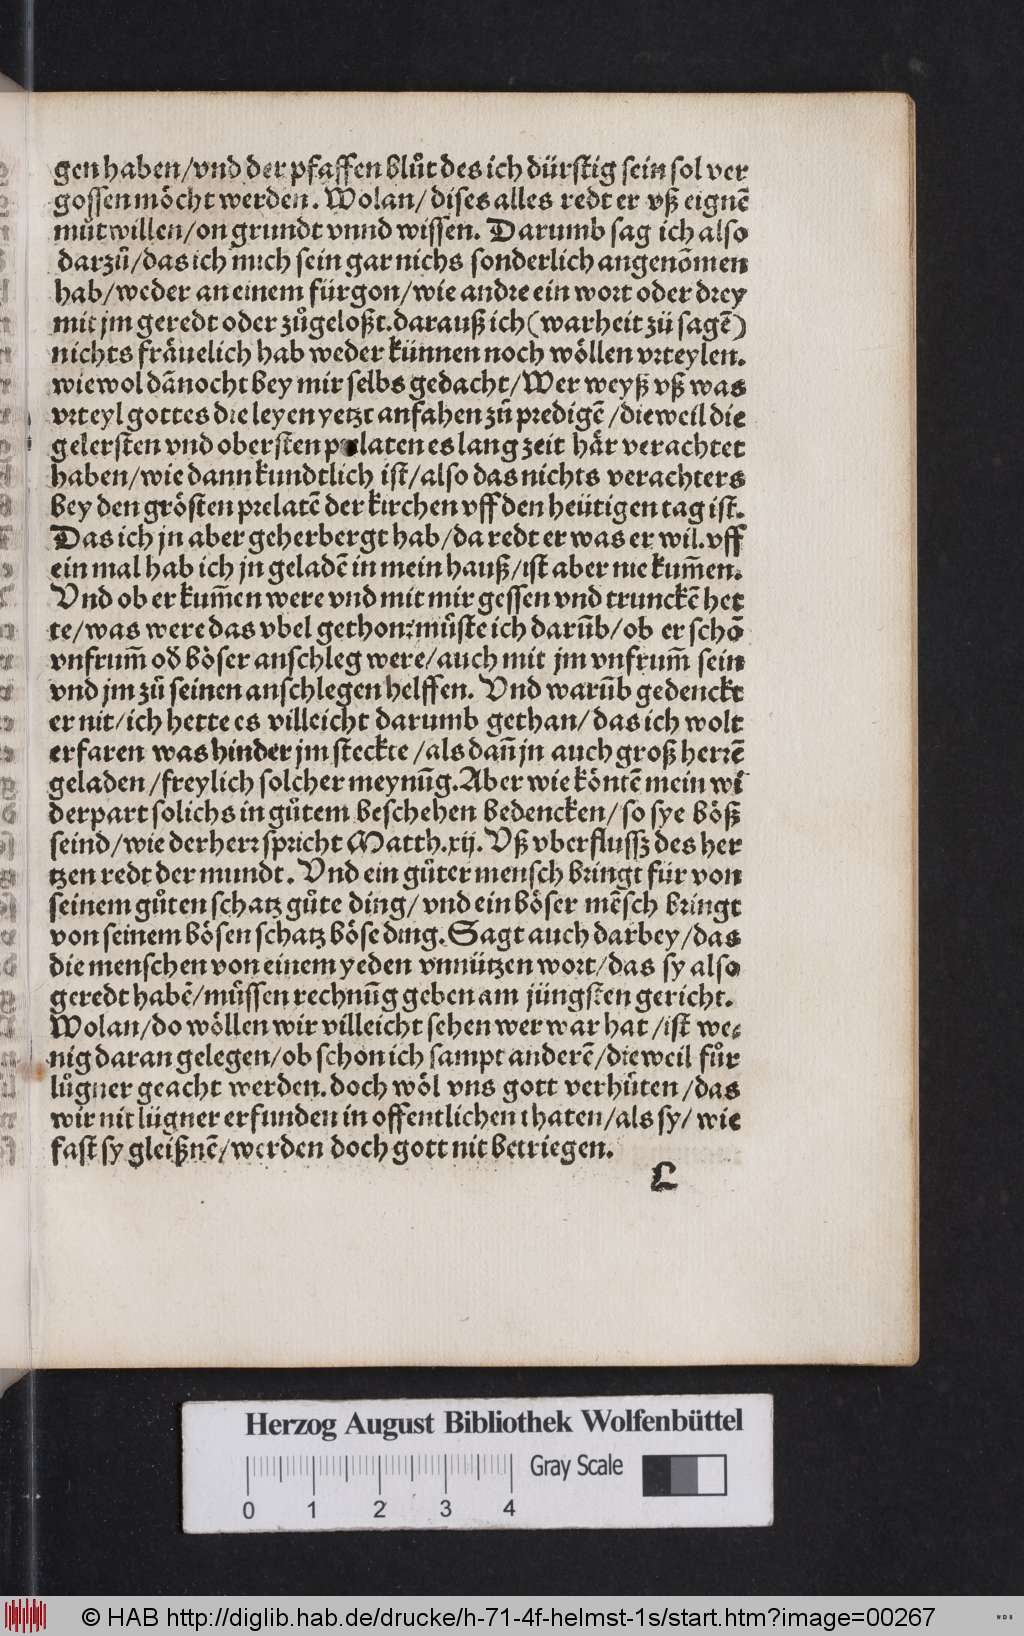 gen haben/vnd der pfaffen blůt des ich dürstig sein sol ver
gossen möcht werden. Wolan/ dises alles redt er vß eignē
můtwillen/on grundt vnnd wissen. Darumb sag ich also
darzů/das ich mich sein gar nichs sonderlich angenõmen
hab/weder an einem fürgon/wie andre ein wort oder drey
mit jm geredt oder zůgeloßt.darauß ich(warheit zů sagē)
nichts fräuelich hab weder künnen noch wöllen vrteylen.
wiewol dãnocht bey mir selbs gedacht/Wer weyß vß was
vrteyl gottes die leyen yetzt anfahen zů predigē/dieweil die
gelersten vnd obersten prelaten es lang zeit här verachtet
haben/wie dann kundtlich ist/also das nichts verachters
bey den grösten prelatē der kirchen vff den heütigen tag ist.
Das ich jn aber geherbergt hab/da redt er was er wil.vff
ein mal hab ich jn geladē in mein hauß/ist aber nie kum̃en.
Vnd ob er kum̃en were vnd mit mir gessen vnd trunckē het
te/was were das vbel gethon:můste ich darũb/ob er schõ
vnfrum̃ oď böser anschleg were/auch mit jm vnfrum̃ sein
vnd jm zů seinen anschlegen helffen. Vnd warũb gedenckt
er nit/ich hette es villeicht darumb gethan/das ich wolt
erfaren was hinder jm steckte/als dañ jn auch groß herrē
geladen/freylich solcher meynũg.Aber wie köntē mein wi
derpart solichs in gůtem beschehen bedencken/so sye böß
seind/wie der herr spricht Matth.xij. Vß vberflussz des her
tzen redt der mundt. Vnd ein gůter mensch bringt für von
seinem gůten schatz gůte ding/ vnd ein böser mēsch bringt
von seinem bösen schatz böse ding. Sagt auch darbey/das
die menschen von einem yeden vnnützen wort/das sy also
geredt habē/müssen rechnũg geben am jüngsten gericht.
Wolan/do wöllen wir villeicht sehen wer war hat/ist we⸗
nig daran gelegen/ob schon ich sampt anderē/dieweil für
lůgner geacht werden.doch wöl vns gott verhüten/das
wir nit lügner erfunden in offentlichen thaten/als sy/ wie
fast sy gleißnē/werden doch gott nit betriegen.
L
Herzog August Bibliothek Wolfenbüttel
Gray Scale
0 1 2 3 4
© HAB http://diglib.hab.de/drucke/h-71-4f-helmst-1s/start.htm?image=00267